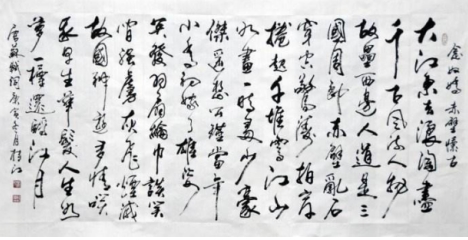 念奴嬌 赤壁懷古
大江東去浪淘盡
千古風流人物
故壘西邊人道是三
國周郎赤壁亂石
穿空驚濤拍岸
捲起千堆雪江山
如畫一時多少豪
傑遙想公瑾當年
小喬初嫁了雄姿
英發羽扇綸巾談笑
間強虜灰飛煙滅
故國神遊多情笑
我早生華髮人生如
夢一樽還酹江月
蘇軾詞庚寅月